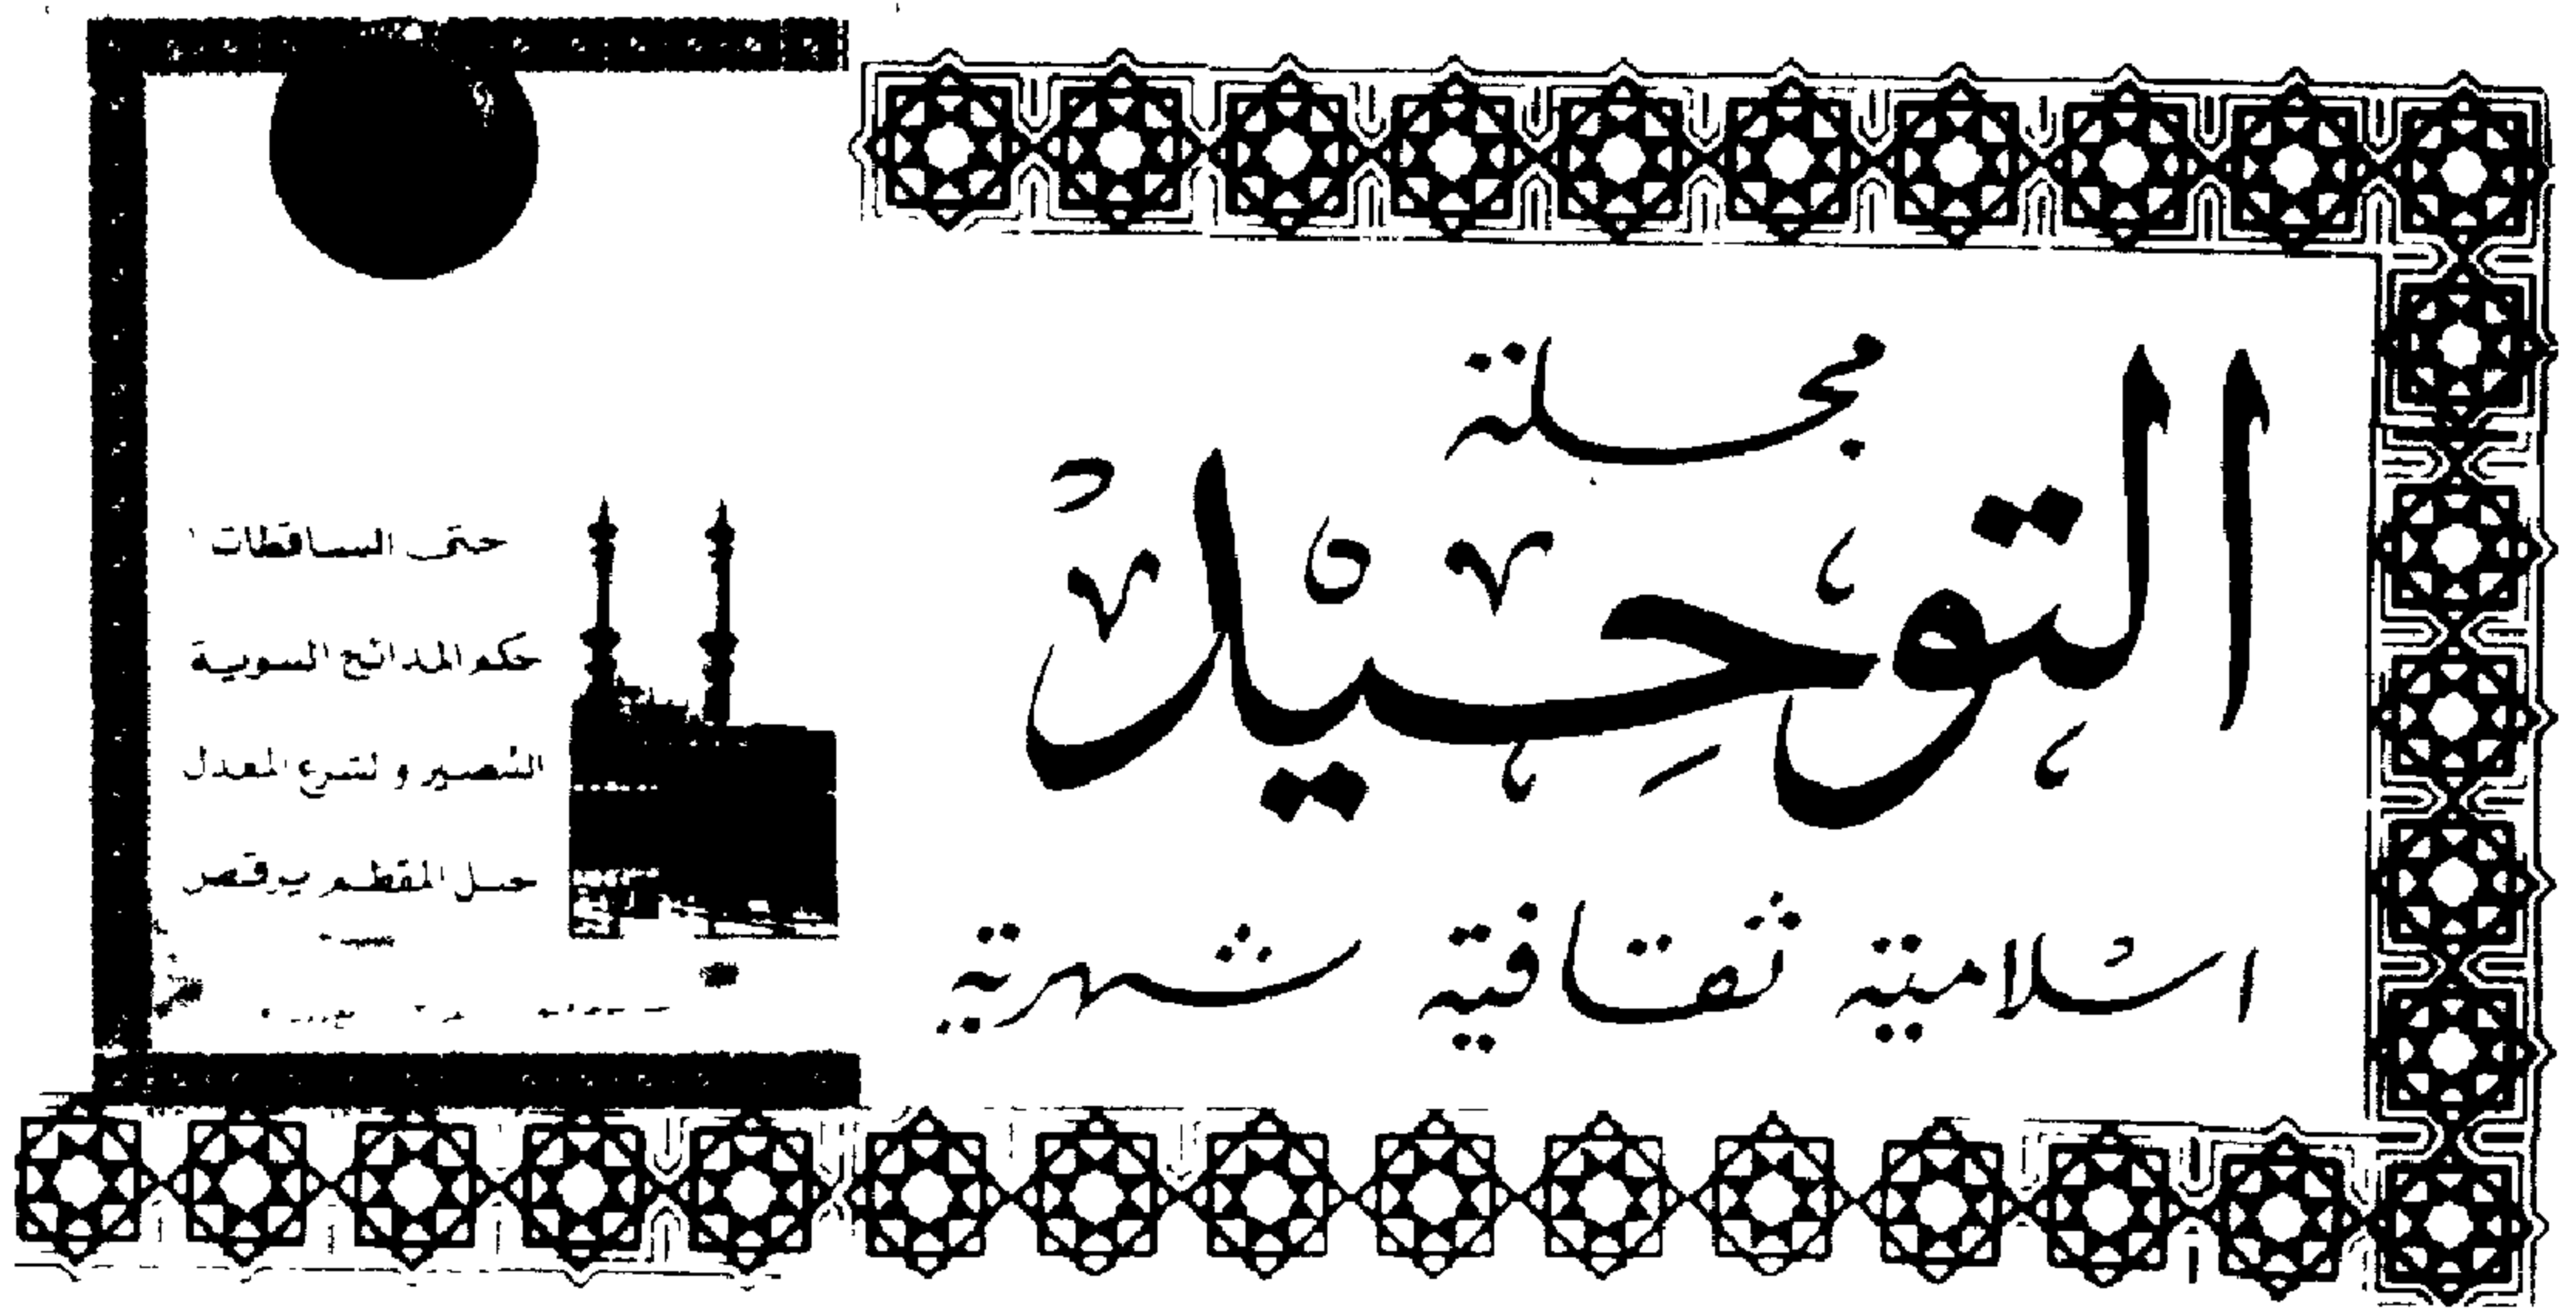 مجلة
التوحيد
اسلامية ثقافية شهرية
حتى الساقطات !
حكم المدائح النبوية
التنصير والشرع المعدل
جبل المقطم يرقص